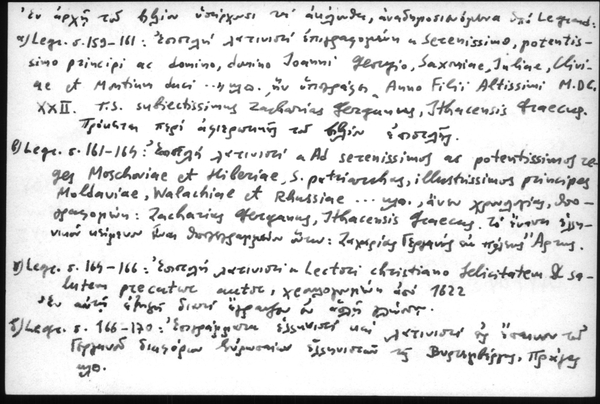 ἐν ἀρχῇ τοῦ βιβλίου ὑπάρχουσι τὰ ἀκόλουθα, ἀναδημοσιευόμενα ὑπὸ Legrand:
α) Legr. σ. 159-161: Ἐπιστολὴ λατινιστὶ ἐπιγραφομένη «Serenissimo, potentis-
simo principi ac domino, domino Joanni Georgio, Saxoniae, Juliae, Clivi-
ae et Montium duci ... κλπ., ἣν ὑπογράφει Anno Filii Altissimi M.DC.
XXII. T.S. subiectissimus Zacharias Gerganus, Ithacensis Graecus.
Πρόκειται περὶ ἀφιερωτικῆς τοῦ βιβλίου ἐπιστολῆς.
β) Legr. σ. 161-164: Ἐπιστολὴ λατινιστὶ «Ad serenissimos ac potentissimos re-
ges Moschoviae et Hiberiae, S. patriarchas, illustrissimos principes
Moldaviae, Walachiae et Rhussiae ... κλπ., ἄνευ χρονολογίας, ὑπο-
γραφομένη: Zacharias Gerganus, Ithacensis Graecus. Τὸ ἔναντι ἑλλη-
νικὸν κείμενον εἶναι ὑπογεγραμμένον οὕτω: Ζαχαρίας Γεργανὸς ἐκ πόλεως Ἄρτης.
γ) Legr. σ. 164-166: Ἐπιστολὴ λατινιστὶ «Lectori christiano felicitatem & sa-
lutem precatur auctor, χρονολογουμένη ἀπὸ 1622
Ἐν αὐτῇ ἐξηγεῖ διατὶ ἔγραψεν ἐν ἁπλῇ γλώσσῃ.
δ) Legr. σ. 166-170: Ἐπιγράμματα ἑλληνιστὶ καὶ λατινιστὶ εἰς ἔπαινον τοῦ
Γεργανοῦ διαφόρων Εὐρωπαίων ἑλληνιστῶν τῆς Βυρτεμβέργης, Πράγας
κλπ.